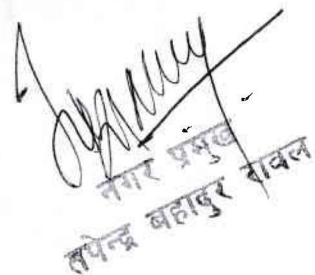 नगर प्रमुख
तपेन्द्र बहादुर रावल